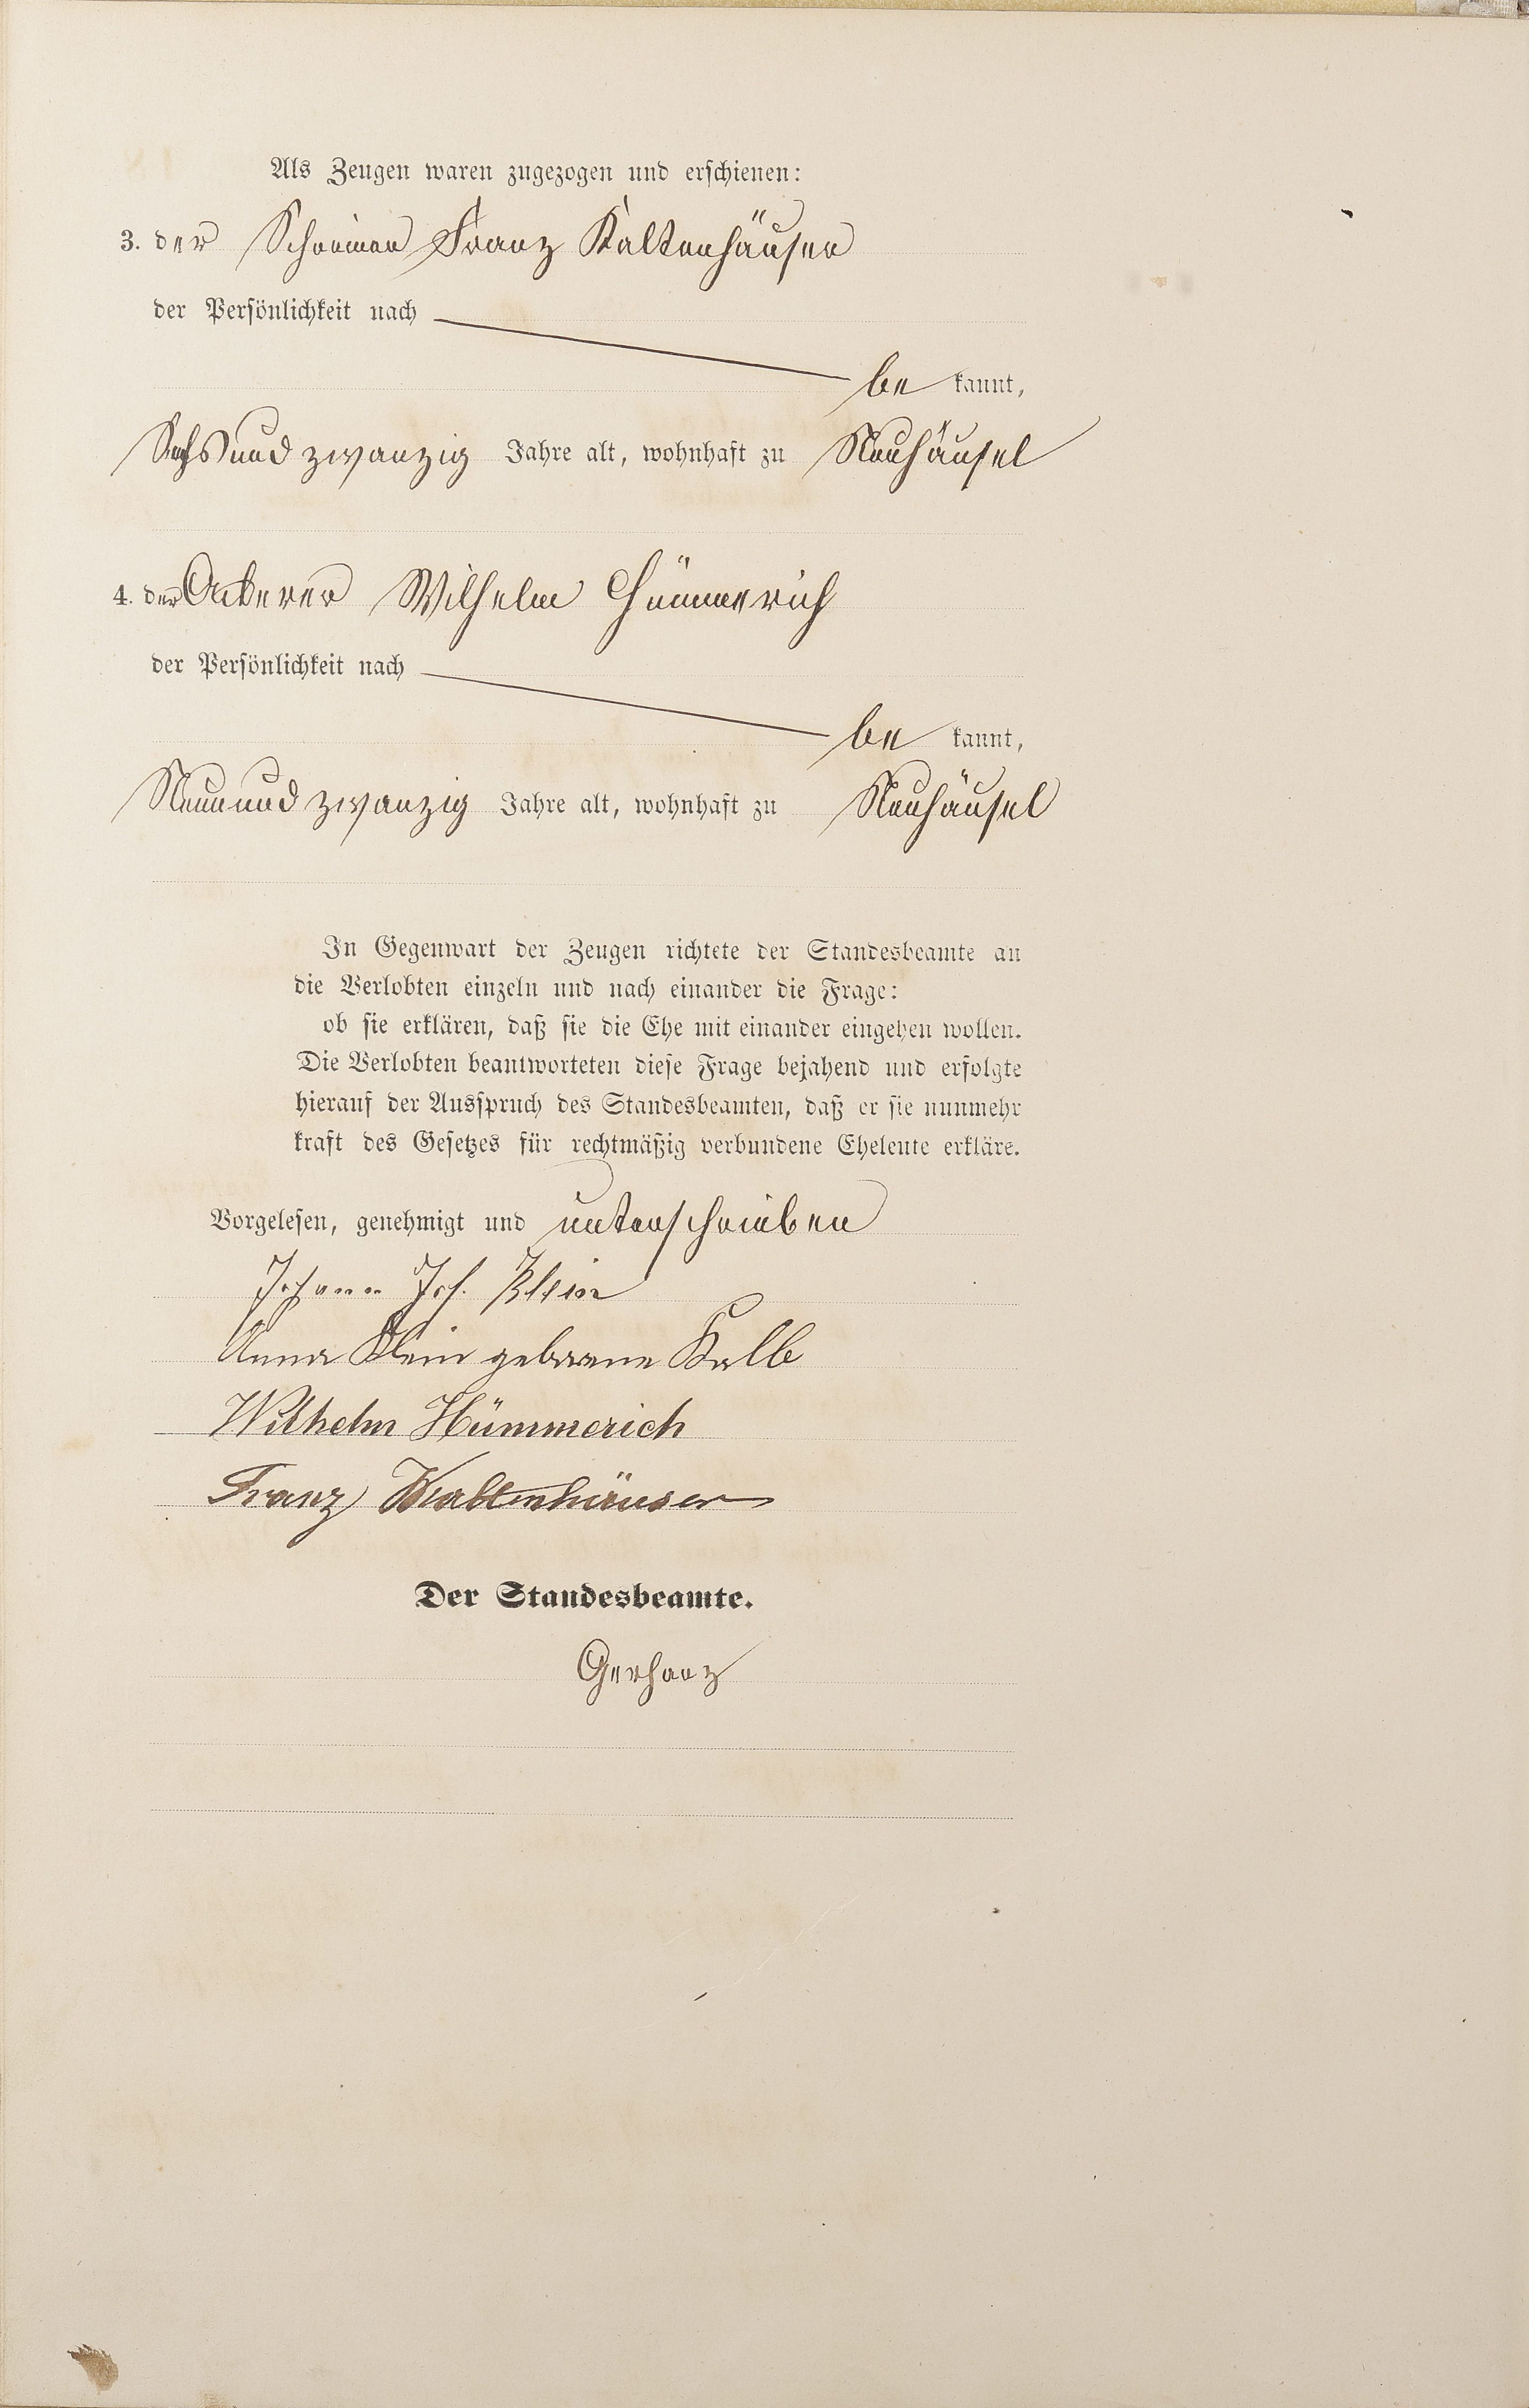 Als Zeugen waren zugezogen und erschienen:
3. der Schreiner Franz Kaltenhäuser
der Persönlichkeit nach
be kannt,
Sechsundzwanzig Jahre alt, wohnhaft zu Neuhäusel
4. der Ackerer Wilhelm Hümmerich
der Persönlichkeit nach
be kannt,
Neunundzwanzig Jahre alt, wohnhaft zu Neuhäusel
In Gegenwart der Zeugen richtete der Standesbeamte an
die Verlobten einzeln und nach einander die Frage:
ob sie erklären, daß sie die Ehe mit einander eingehen wollen.
Die Verlobten beantworteten diese Frage bejahend und erfolgte
hierauf der Ausspruch des Standesbeamten, daß er sie nunmehr
kraft des Gesetzes für rechtmäßig verbundene Eheleute erkläre.
Vorgelesen, genehmigt und unterschrieben
Johann Jos. Klein
Anna Klein geborene Kalb
Wilhelm Hümmerich
Franz Kaltenhäuser
Der Standesbeamte.
Gerharz